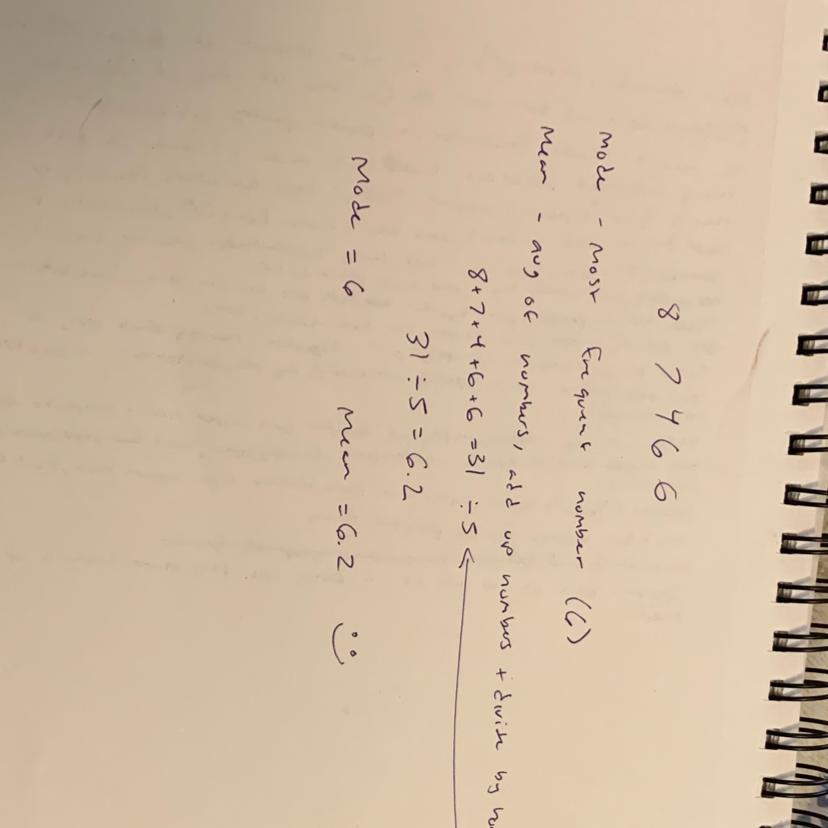 8 7 4 6 6
Mode - most frequent number (6)
Mean - avg of numbers, add up numbers + divide by
8+7+4+6+6 =31 ÷5
31÷5=6.2
Mode = 6 Mean =6.2 :)